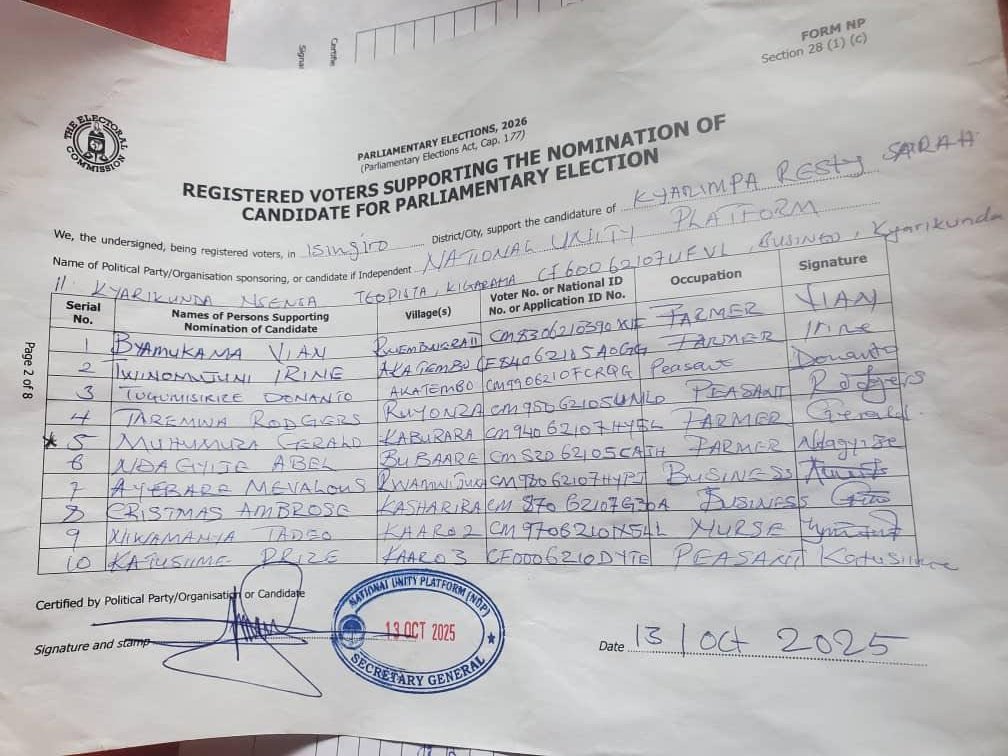 FORM NP
Section 28 (1) (c)
Certifie
Signat
THE ELECTORAL COMMISSION
PARLIAMENTARY ELECTIONS, 2026
(Parliamentary Elections Act, Cap. 177)
REGISTERED VOTERS SUPPORTING THE NOMINATION OF
CANDIDATE FOR PARLIAMENTARY ELECTION
We, the undersigned, being registered voters, in Isingiro District/City, support the candidature of KYARIMPA RESTY SARAH
Name of Political Party/Organisation sponsoring, or candidate if Independent NATIONAL UNITY PLATFORM
11. KYARIKUNDA NSENGA TEOPISTA, KIGARAMA CF60062107UEVL, BUSINESS, Kyarikunda
Serial No. Names of Persons Supporting Nomination of Candidate Village(s) Voter No. or National ID No. or Application ID No. Occupation Signature
1 BYAMUKAMA VIAN FARMER VIAN
2 TWINOMUJUNI IRINE AKATEMBO FARMER Irine
3 TUGUMISIRIZE DONANTO AKATEMBO CM9906210FCRQG Peasant Donanto
4 TAREMWA RODGERS RUYONZA PEASANT Rodgers
5 MUHUMUZA GERALD KABURARA FARMER Gerald
6 NDAGYIJE ABEL BUBAARE FARMER Ndagyije
7 AYEBARE MEVALOUS BUSINESS
8 CRISTMAS AMBROSE KASHARIRA BUSINESS
9 NIWAMANYA TADEO KAARO 2 NURSE
10 KATUSIIME PRIZE KAARO 3 CF0006210DYTE PEASANT Katusiime
Page 2 of 8
Certified by Political Party/Organisation or Candidate
Signature and stamp
NATIONAL UNITY PLATFORM (NUP)
13 OCT 2025
SECRETARY GENERAL
Date 13/Oct 2025